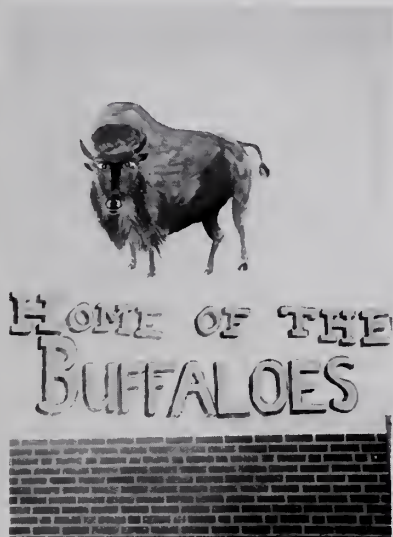 HOME OF THE
BUFFALOES